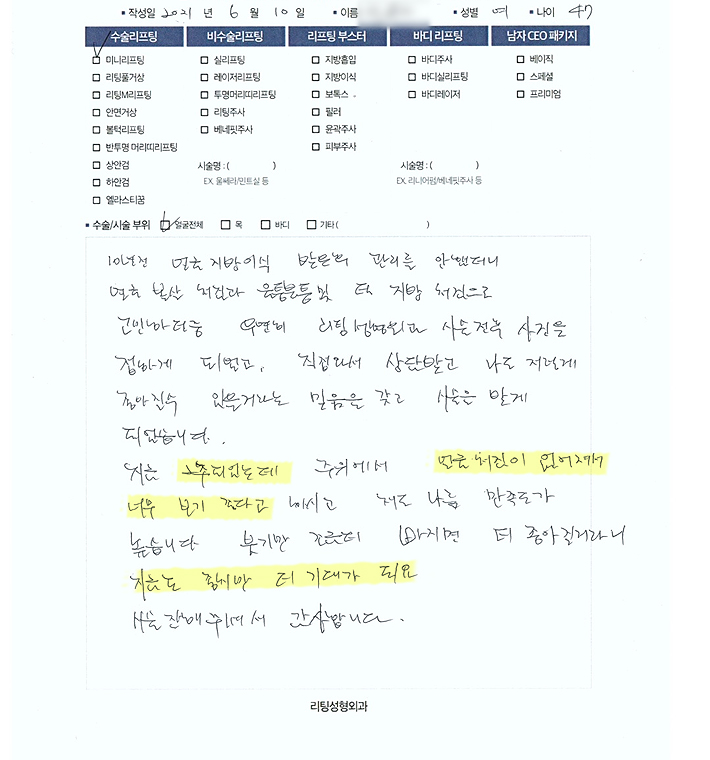 작성일 2021 년 6 월 10 일 이름 성별 여 나이 47
수술리프팅 비수술리프팅 리프팅 부스터 바디 리프팅 남자 CEO 패키지
미니리프팅 실리프팅 지방흡입 바디주사 베이직
리팅풀거상 레이저리프팅 지방이식 바디실리프팅 스페셜
리팅M리프팅 투명머리띠리프팅 보톡스 바디레이저 프리미엄
안면거상 리팅주사 필러
볼턱리프팅 베네핏주사 윤곽주사
반투명 머리띠리프팅 피부주사
상안검 시술명 : ( ) 시술명 : ( )
하안검 EX. 울쎄라/민트실 등 EX. 리니어펌/베네핏주사 등
엘라스티꿈
수술/시술 부위 얼굴전체 목 바디 기타 ( )
10년전 얼굴 지방이식 받은뒤 관리를 안했더니
얼굴 볼살 처짐과 울퉁불퉁 및 턱 지방 처짐으로
고민하던중 우연히 리팅성형외과 시술전후 사진을
접하게 되었고, 직접와서 상담받고 나도 저렇게
좋아질수 있을거라는 믿음을 갖고 시술을 받게
되었습니다.
지금 주되었는데 주위에서 얼굴처짐이 없어져서
너무 보기 좋다고 하시고 저도 나름 만족도가
높습니다 붓기만 조금더 빠지면 더 좋아질거라니
지금도 좋지만 더 기대가 되요
시술 잘해주셔서 감사합니다.
리팅성형외과